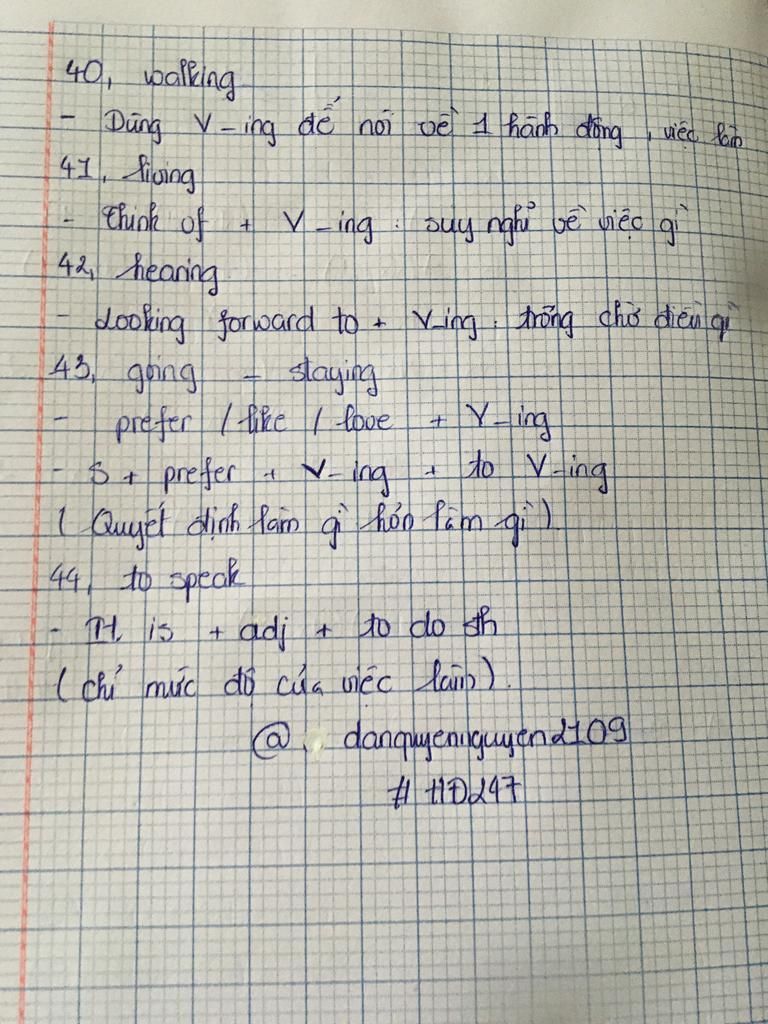 40, walking
- Dùng V-ing để nói về 1 hành động, việc làm
41, living
- think of + V-ing: suy nghĩ về việc gì
42, hearing
- Looking forward to + V-ing: trông chờ điều gì
43, going - staying
- prefer / like / love + V-ing
- S + prefer + V-ing + to V-ing
( Quyết định làm gì hơn làm gì )
44, to speak
- It is + adj + to do sth
( chỉ mức độ của việc làm ).
@. danquyennguyen2109
# HD247